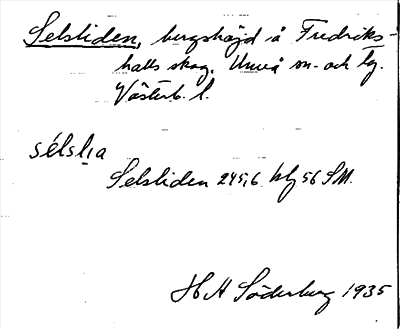 Selsliden, bergshöjd å Fredriks-
halls skog. Umeå sn. och tg.
Västerb. l.
sélsl̥ia
Selsliden 245,6 kbl 56 SM.
H H Söderburg 1935